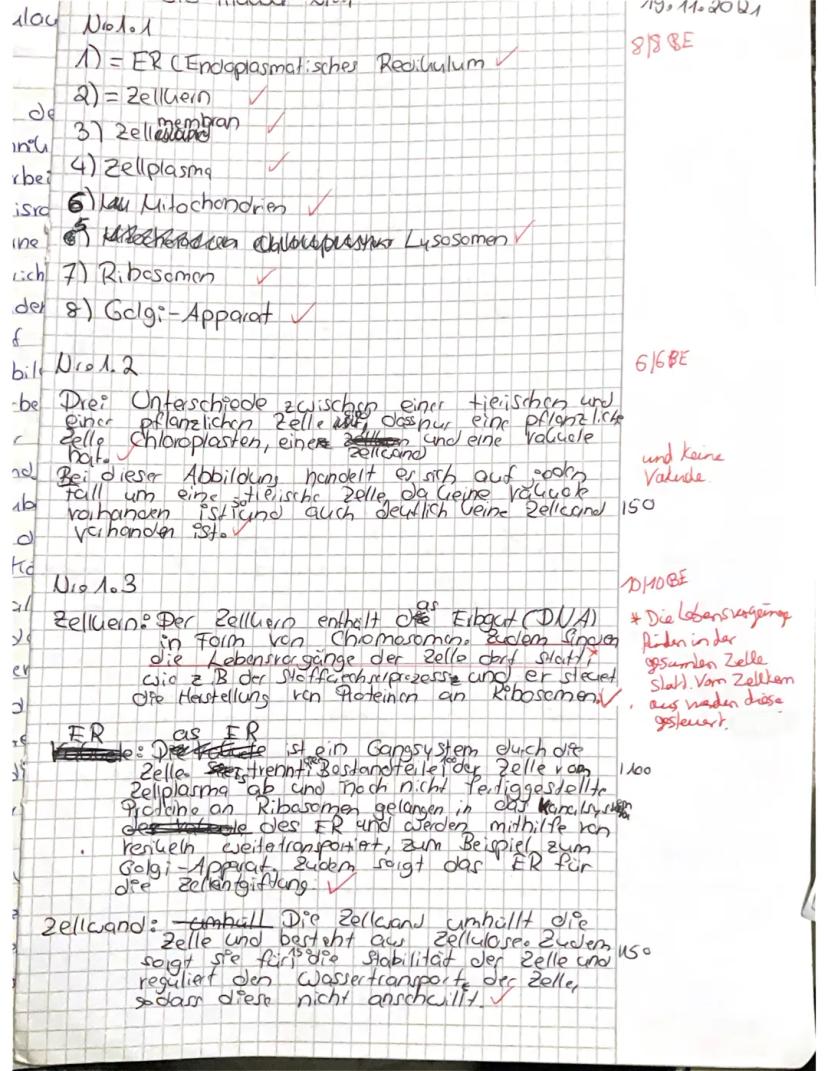 19.11.2021
Nr. 1.1
8/8 BE
1) = ER (Endoplasmatisches Redikulum
2) = Zellkern
3) Zellmembran
4) Zellplasma
6) Mitochondrien
5) Lysosomen
7) Ribosomen
8) Golgi-Apparat
Nr. 1.2
6/6 BE
Drei Unterschiede zwischen einer tierischen und
einer pflanzlichen Zelle ist, dass nur eine pflanzliche
Zelle Chloroplasten, eine Zellwand und eine Vakuole
hat.
und keine
Vakuole.
Bei dieser Abbildung handelt es sich auf jeden
fall um eine tierische Zelle, da keine Vakuole
vorhanden ist und auch deutlich keine Zellwand
150
vorhanden ist.
Nr. 1.3
10/10 BE
Zellkern: Der Zellkern enthält das Erbgut (DNA)
in Form von Chromosomen. Zudem finden
die Lebensvorgänge der Zelle dort statt,
wie z.B der Stoffwechselprozess und er steuert
die Herstellung von Proteinen an Ribosomen.
* Die Lebensvorgänge
finden in der
gesamten Zelle
statt. Vom Zellkern
aus werden diese
gesteuert.
ER: Das ER ist ein Gangsystem durch die
Zelle. Es trennt Bestandteile der Zelle vom
1100
Zellplasma ab und noch nicht fertiggestellte
Proteine an Ribosomen gelangen in das Kanalsystem
des ER und werden mithilfe von
Vesikeln weitertransportiert, zum Beispiel zum
Golgi-Apparat. Zudem sorgt das ER für
die Zellentgiftung.
Zellwand: Die Zellwand umhüllt die
Zelle und besteht aus Zellulose. Zudem
1150
sorgt sie für die Stabilität der Zelle und
reguliert den Wassertransport der Zelle,
sodass diese nicht anschwillt.